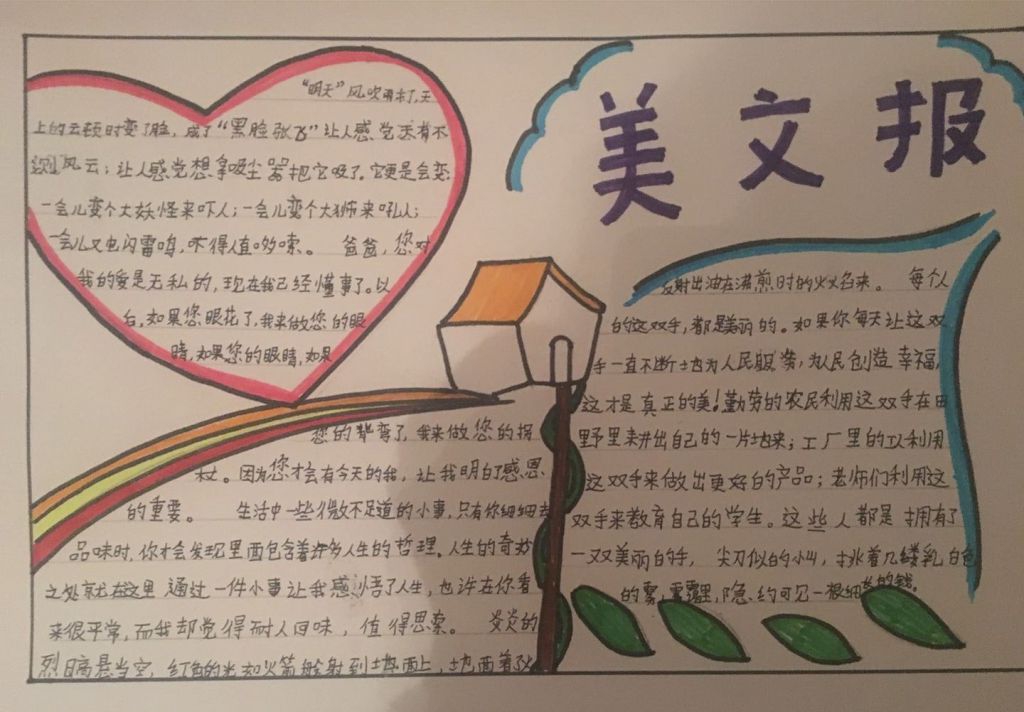 美文报
“明天”风吹来了,天
上的云顿时变了脸，成了“黑脸张飞”让人感觉天有不
测风云；让人感觉想拿吸尘器把它吸了。它更是会变
一会儿变个大妖怪来吓人；一会儿变个大狮来吼人；
一会儿又电闪雷鸣，不得人值哆嗦。 爸爸，您对
我的爱是无私的，现在我已经懂事了。以
后，如果您眼花了，我来做您的眼
睛，如果您的眼睛，如果
您的背弯了，我来做您的拐
杖。因为您才会有今天的我，让我明白了感恩
的重要。 生活中一些微不足道的小事，只有你细细去
品味时，你才会发现里面包含着许多人生的哲理。人生的奇妙
之处就在这里 通过一件小事让我感悟了人生，也许在你看
来很平常，而我却觉得耐人回味，值得思索。 炎炎的
烈日高悬当空，红色的光如火箭般射到地面上，地面着了火
反射出油在沸煎时的火火名来。 每个人
的这双手，都是美丽的。如果你每天让这双
手一直不断地为人民服务，为民创造幸福，
这才是真正的美！勤劳的农民利用这双手在田
野里耕出自己的一片地来；工厂里的工利用
这双手来做出更好的产品；老师们利用这
双手来教育自己的学生。这些人都是拥有了
一双美丽的手， 尖刀似的小山，挑着几缕乳白色
的雾，雾霭里，隐约可见一根细长的线。